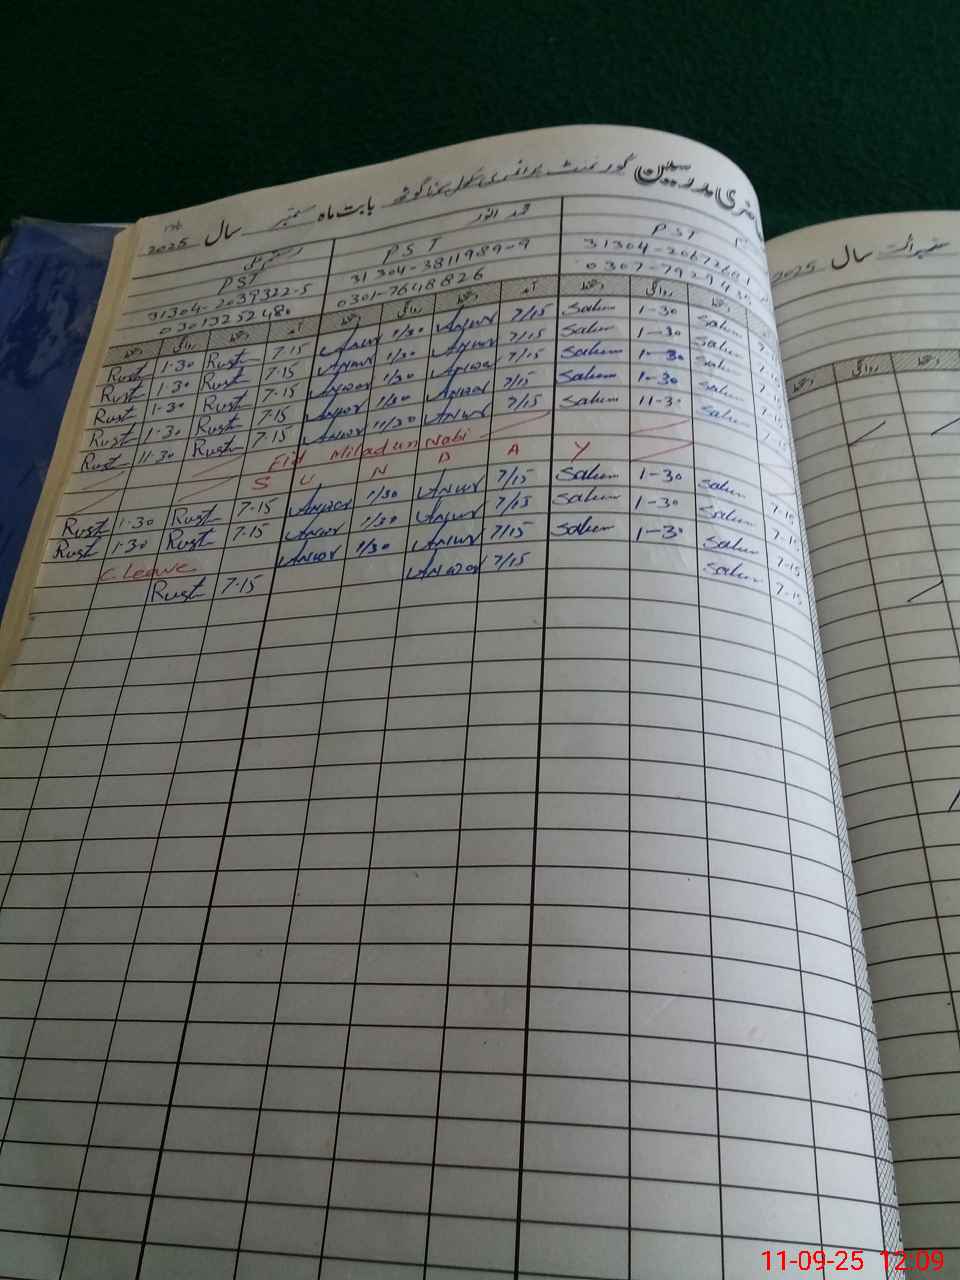 حاضری مدرسین گورنمنٹ پرائمری سکول بابت ماہ ستمبر سال 2025
محمد انور
PST PST PST
31304-2039322-5 31304-3811989-9
03013252480 0301-7648826
دستخط روانگی دستخط آمد دستخط روانگی دستخط آمد دستخط روانگی دستخط
Rust 1-30 Rust 7-15 Anwar 1/30 Anwar 7/15 Salum 1-30 Salum
Rust 1-30 Rust 7-15 Anwar 1/30 Anwar 7/15 Salum 1-30 Salum 7-15
Rust 1-30 Rust 7-15 Anwar 1/30 Anwar 7/15 Salum 1-30 Salum 7-15
Rust 1-30 Rust 7-15 Anwar 1/30 Anwar 7/15 Salum 1-30 Salum 7-15
Rust 11-30 Rust 7-15 Anwar 11/30 Anwar 7/15 Salum 11-30 Salum
Eid Milad un Nabi
S U N D A Y
Rust 1-30 Rust 7-15 Anwar 1/30 Anwar 7/15 Salum 1-30 Salum 7-15
Rust 1-30 Rust 7-15 Anwar 1/30 Anwar 7/15 Salum 1-30 Salum 7-15
C. Leave Anwar 1/30 Anwar 7/15 Salum 1-30 Salum 7-15
Rust 7-15 Anwar 7/15 Salum 7-15
سال 2025
دستخط روانگی دستخط
11-09-25 12:09